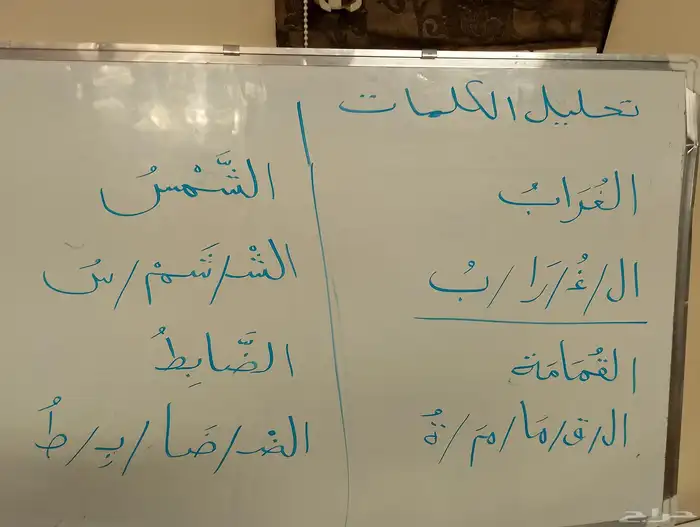 تحليل الكلمات
الغُرَابُ
ال/غُ/رَا/بُ
القُمَامَة
ال/ق/مَا/مَ/ةُ
الشَّمْسُ
الشْ/شَمْ/سُ
الضَّابِطُ
الضْ/ضَا/بِ/طُ
حراج